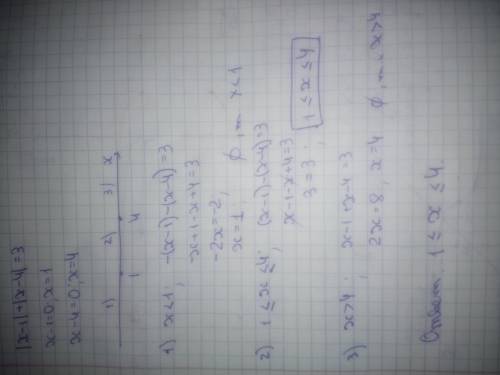 |x-1|+|x-4|=3
x-1=0; x=1
x-4=0; x=4
1) 2) 3) x
1 4
1) x<1; -(x-1)-(x-4)=3
-x+1-x+4=3
-2x=-2,
x=1, ∅, т.к. x<1
2) 1≤x≤4; (x-1)-(x-4)=3
x-1-x+4=3
3=3; 1≤x≤4
3) x>4; x-1+x-4=3
2x=8, x=4 ∅, т.к. x>4
Ответ: 1≤x≤4.